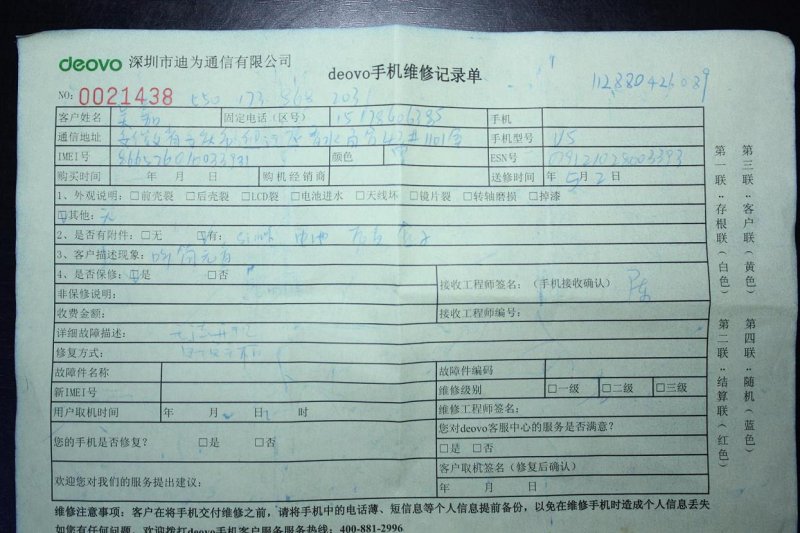 deovo 深圳市迪为通信有限公司
deovo手机维修记录单
NO: 0021438
客户姓名 固定电话（区号） 手机
通信地址 手机型号 V5
IMEI号 颜色 ESN号
购买时间 年 月 日 购机经销商 送修时间 年 月 2 日
1、外观说明：□前壳裂 □后壳裂 □LCD裂 □电池进水 □天线坏 □镜片裂 □转轴磨损 □掉漆
□其他：无
2、是否有附件：□无 □有：
3、客户描述现象：
4、是否保修：□是 □否 接收工程师签名：（手机接收确认） 陈
非保修说明：
收费金额： 接收工程师编号：
详细故障描述：
修复方式：
故障件名称 故障件编码
新IMEI号 维修级别 □一级 □二级 □三级
用户取机时间 年 月 日 时 维修工程师签名：
您的手机是否修复？ □是 □否 您对deovo客服中心的服务是否满意？
□是 □否
客户取机签名（修复后确认）
欢迎您对我们的服务提出建议： 年 月 日
维修注意事项：客户在将手机交付维修之前，请将手机中的电话薄、短信息等个人信息提前备份，以免在维修手机时造成个人信息丢失
如您有任何问题，欢迎拨打deovo手机客户服务服务热线：400-881-2996
第一联：存根联（白色） 第二联：结算联（红色）
第三联：客户联（黄色） 第四联：随机（蓝色）